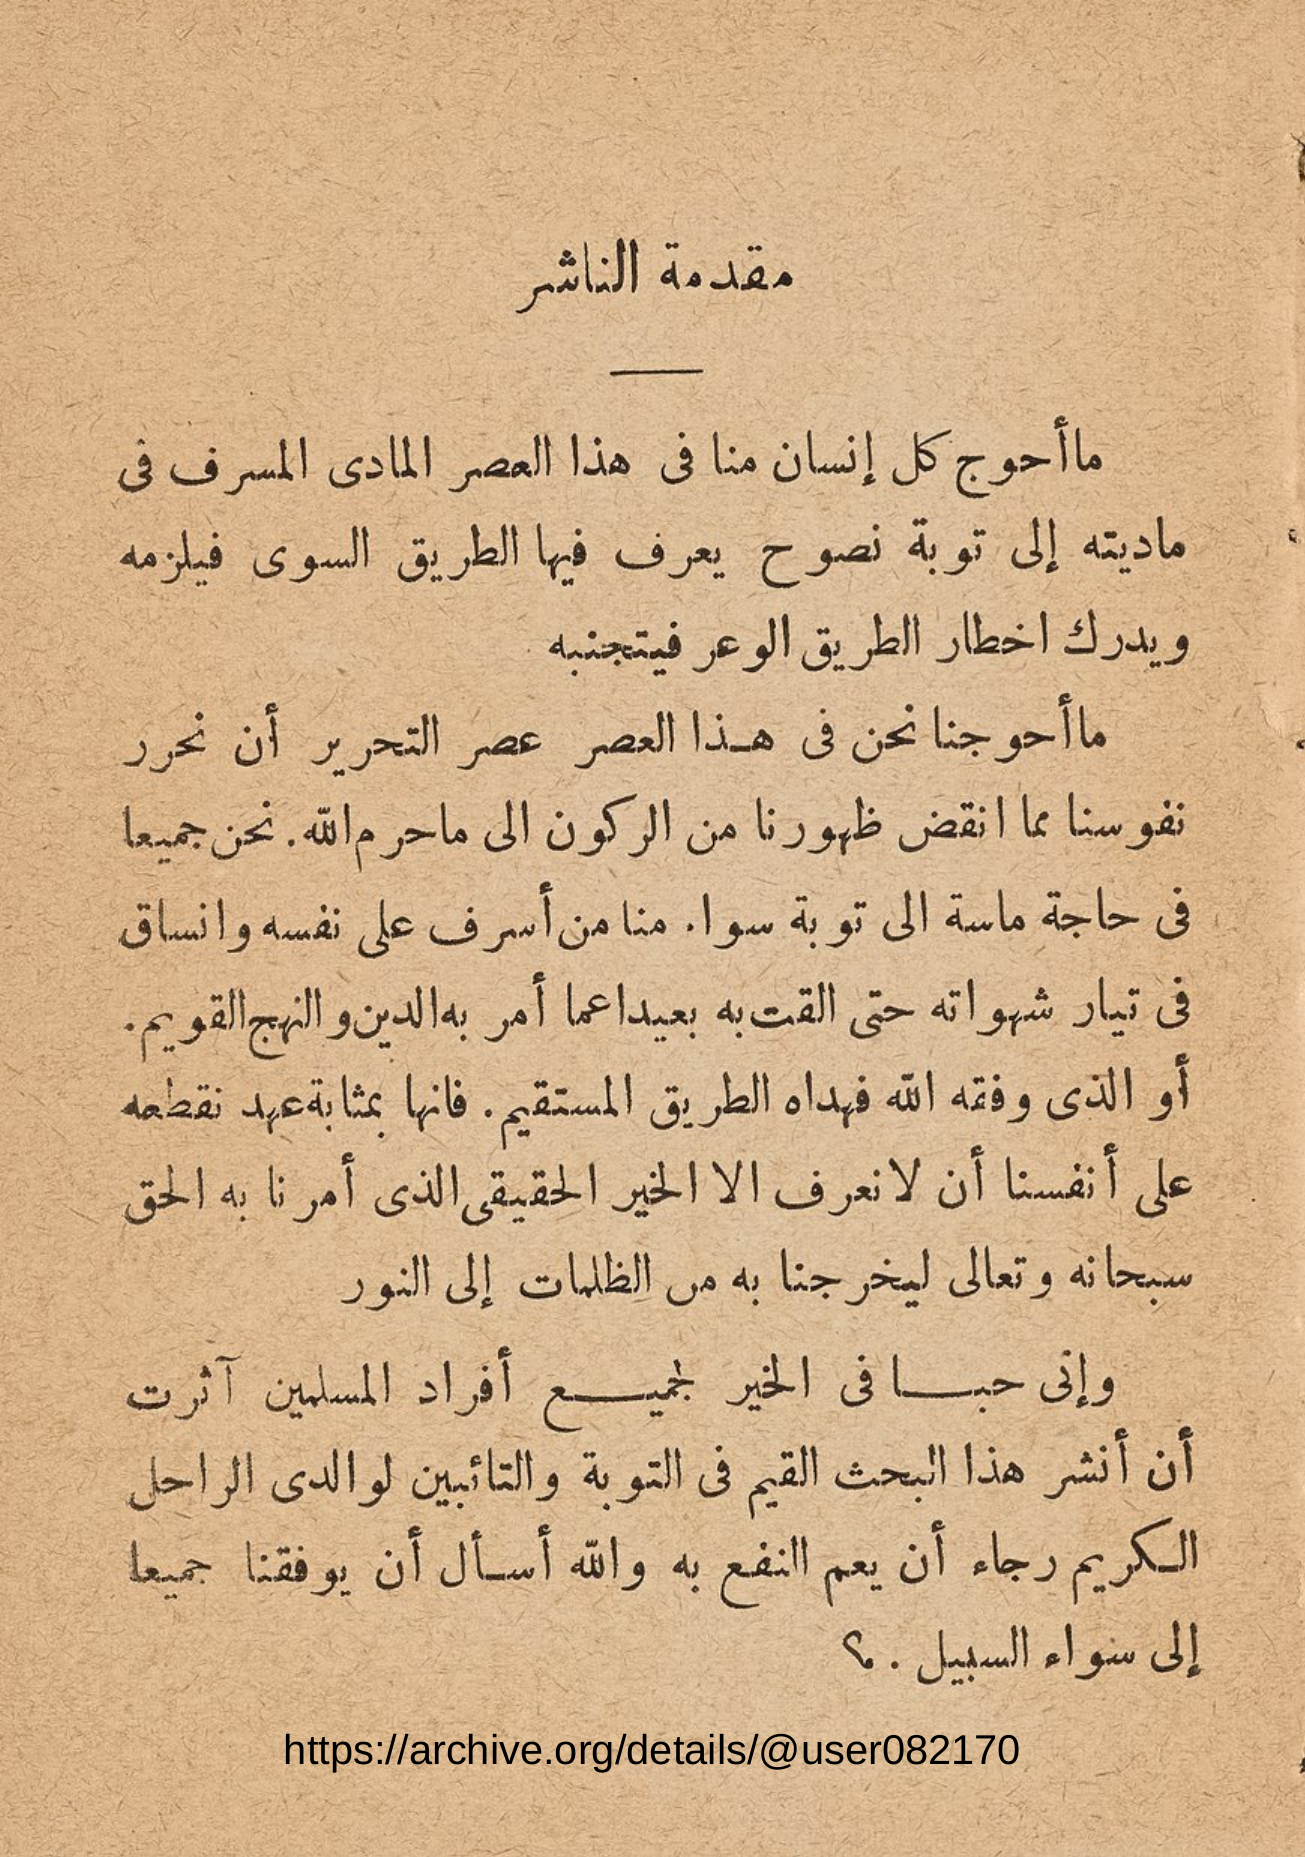 مقدمة الناشر
ماأحوج كل إنسان منا فى هذا العصر المادى المسرف فى
ماديته إلى توبة نصوح يعرف فيها الطريق السوى فيلزمه
ويدرك اخطار الطريق الوعر فيتجنبه
ماأحوجنا نحن فى هـذا العصر عصر التحرير أن نحرر
نفوسنا مما انقض ظهورنا من الركون الى ماحرم الله . نحن جميعا
فى حاجة ماسة الى توبة سوا. منا من أسرف على نفسه وانساق
فى تيار شهواته حتى القت به بعيدا عما أمر به الدين والنهج القويم .
أو الذى وفقه الله فهداه الطريق المستقيم . فانها بمثابة عهد نقطعه
على أنفسنا أن لا نعرف الا الخير الحقيقى الذى أمرنا به الحق
سبحانه وتعالى ليخرجنا به من الظلمات إلى النور
وإنى حبـــا فى الخير لجميــــع أفراد المسلمين آثرت
أن أنشر هذا البحث القيم فى التوبة والتائبين لوالدى الراحل
الـكريم رجاء أن يعم النفع به والله أسـأل أن يوفقنا جميعا
إلى سواء السبيل .
https://archive.org/details/@user082170